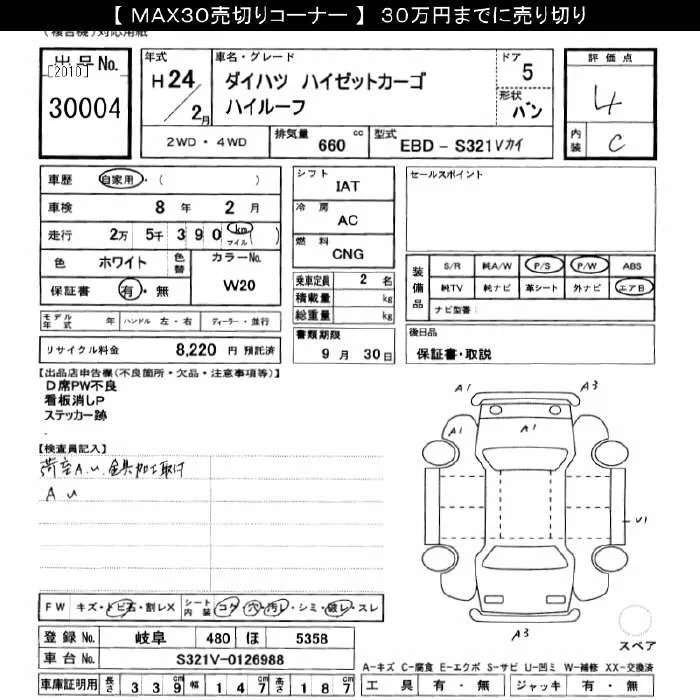 【 MAX30売切りコーナー 】 30万円までに売り切り
(複合機)対応用紙
出品No. [2010] 30004
年式 H24/2月
車名・グレード ダイハツ ハイゼットカーゴ ハイルーフ
ドア 5
形状 バン
評価点 4
内装 C
2WD・4WD 排気量 660 cc 型式 EBD-S321Vカイ
車歴 自家用・( )
車検 8年 2月
走行 2万 5千 390 km マイル ( )
色 ホワイト 色替 カラーNo. W20
保証書 有・無
モデル年式 年 ハンドル 左・右 ディーラー・並行
リサイクル料金 8,220 円 預託済
シフト IAT
冷房 AC
燃料 CNG
乗車定員 2 名
積載量 kg
総重量 kg
書類期限 9月 30日
セールスポイント
装備品 S/R 純A/W P/S P/W ABS
純TV 純ナビ 革シート 外ナビ エアB
ナビ型番:
後日品
保証書・取説
【出品店申告欄(不良箇所・欠品・注意事項等)】
D席PW不良
看板消しP
ステッカー跡
.
【検査員記入】
荷室A.U.金具加工取付
AU
A1 A3
A1 A1
U1
A3
FW キズ・トビ石・割レX シート内装 コゲ・穴・汚レ・シミ・破レ・スレ
登録No. 岐阜 480 ほ 5358
車台No. S321V-0126988
車庫証明用 長さ 339 幅 147 高さ 187
スペア
A-キズ C-腐食 E-エクボ S-サビ U-凹ミ W-補修 XX-交換済
工具 有・無 ジャッキ 有・無